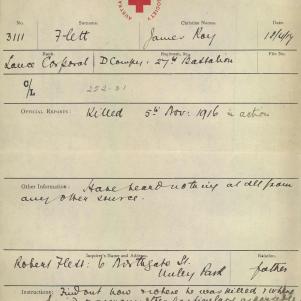 No.
Surname:
Christian Names:
Date:
3111
Flett
James Roy
Rank:
Regiment, &c.
File No.
Lance Corporal
D Compy. 27th Battalion
O/L
252-31
OFFICIAL REPORTS:
Killed 5th Nov: 1916 in action
Other Information:
Have heard nothing at all from
any other source.
Inquirer's Name and Address.
Relation.
Robert Flett: 6 Northgate St.
Unley Park
father
Instructions: Find out how & where he was killed, & where